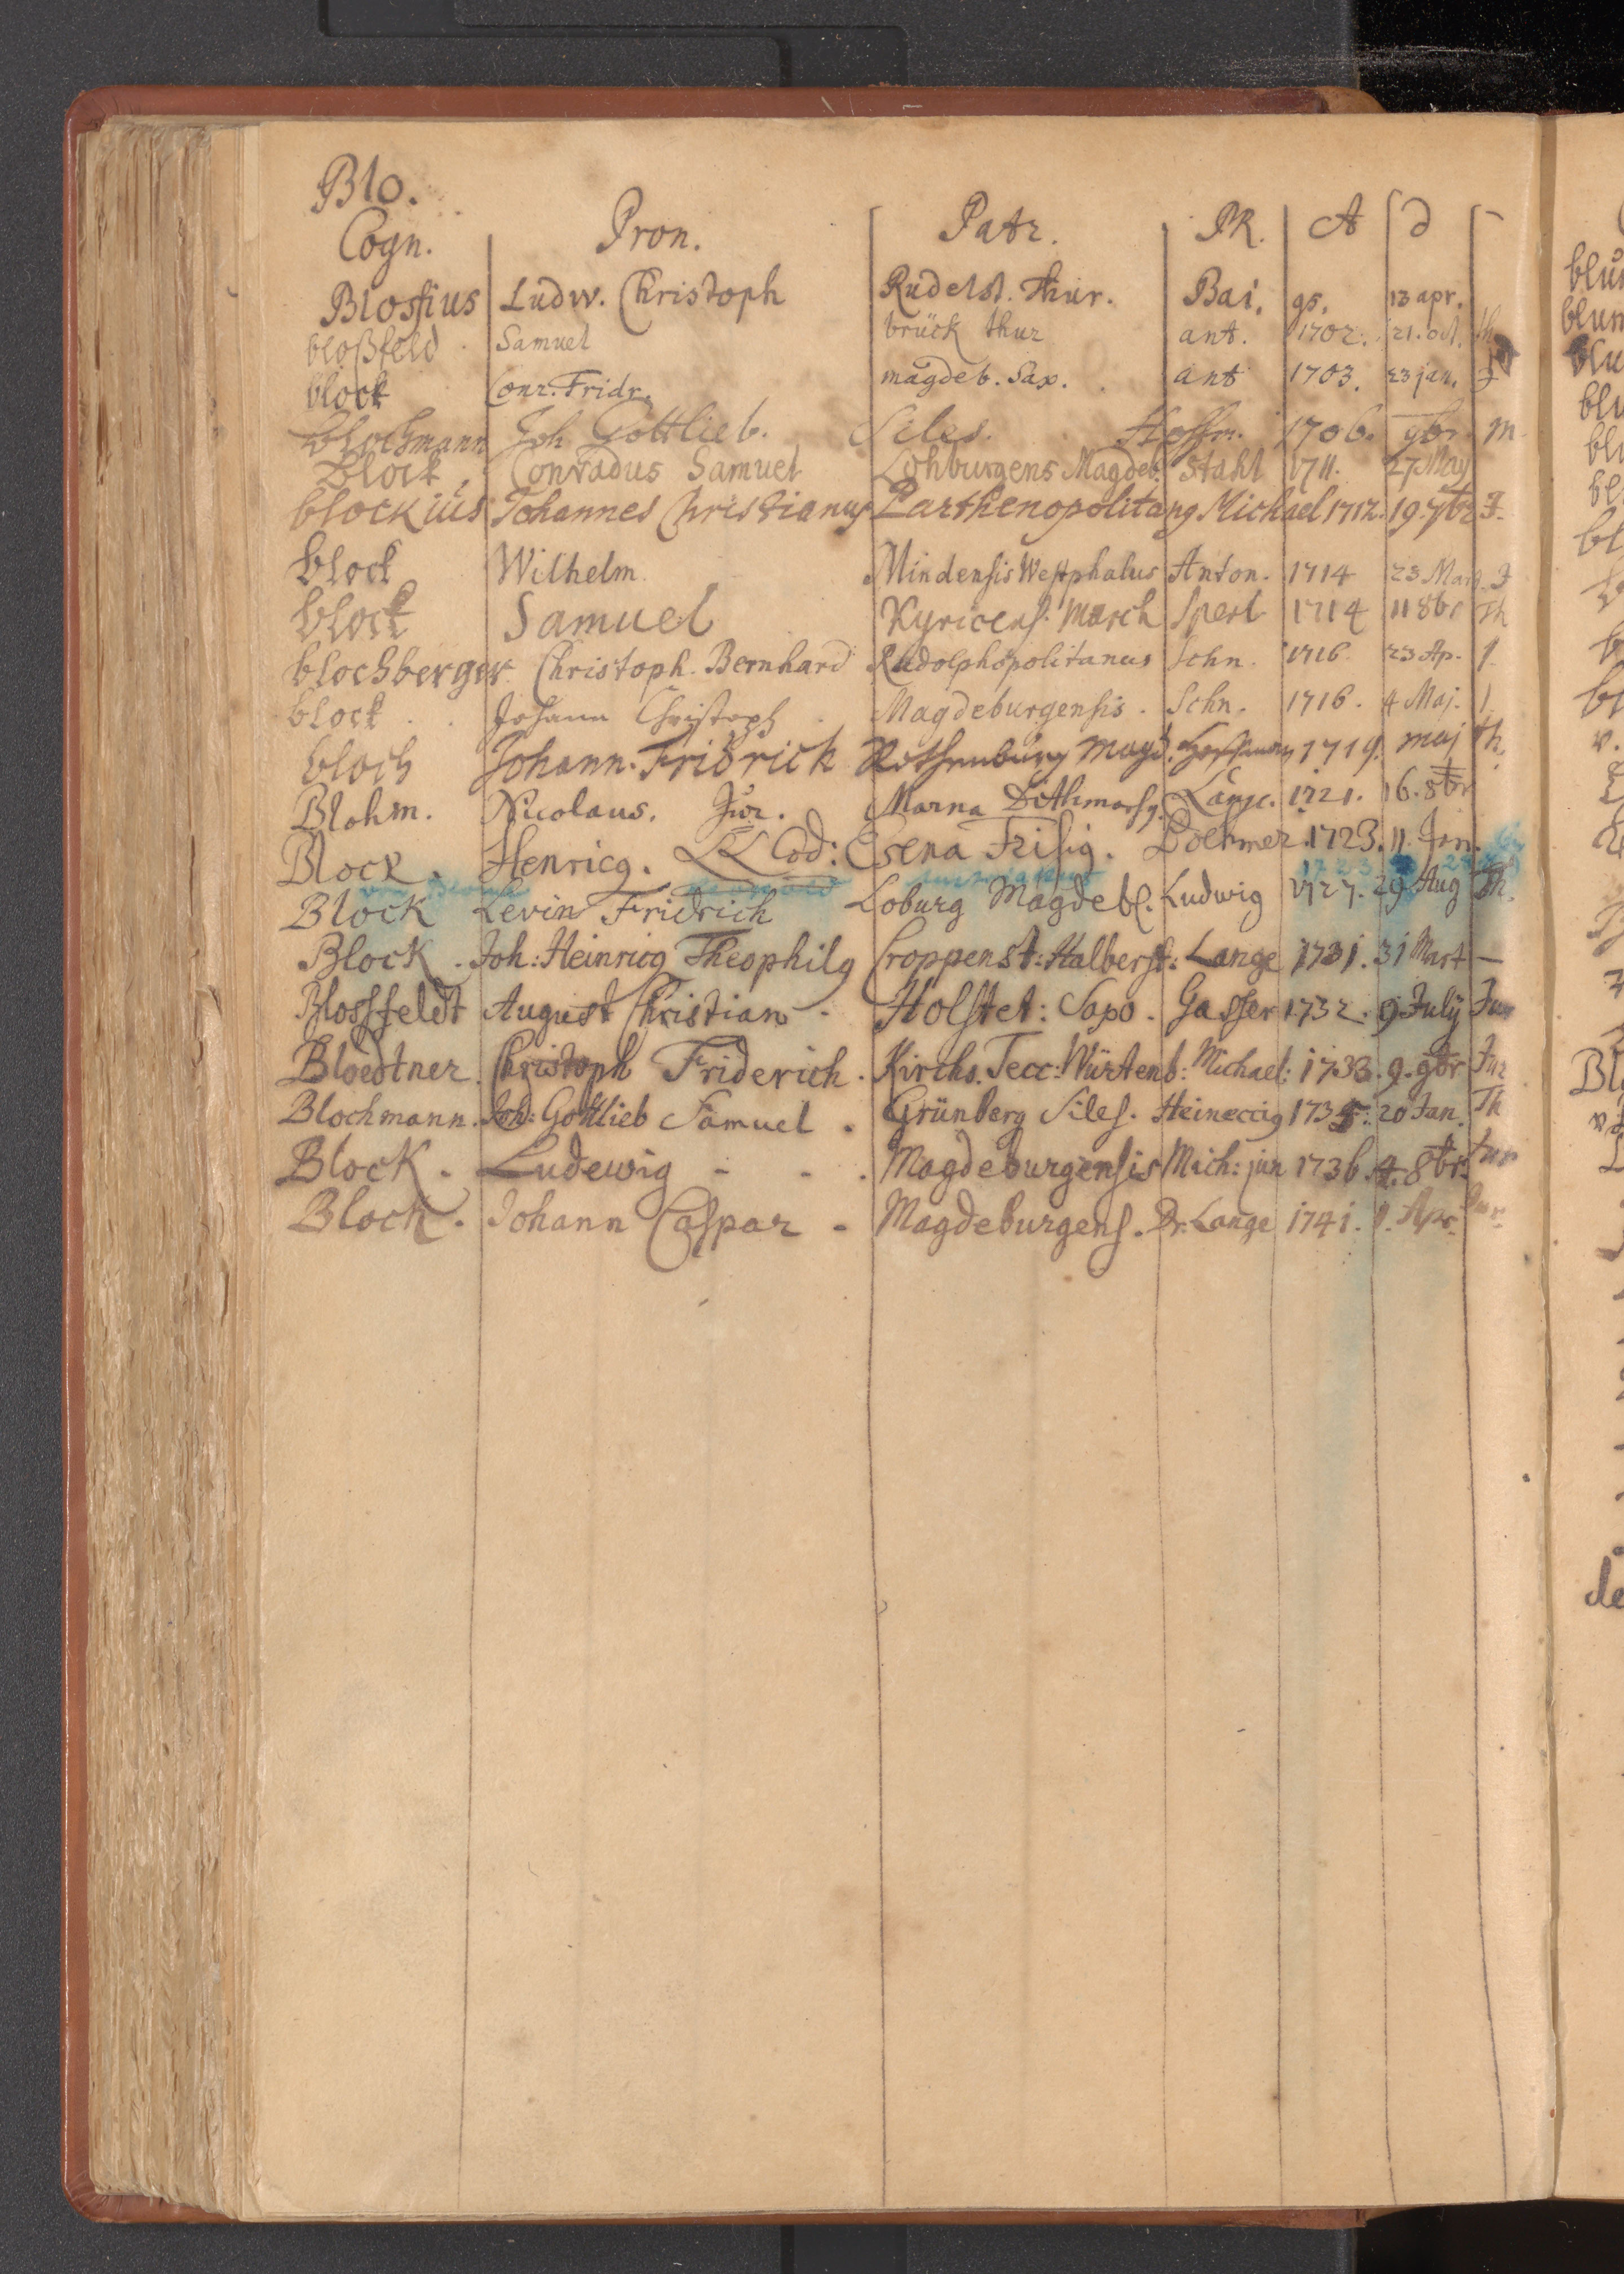 Blo.
Cogn. Pron. Patr. PR. A d
Blossius Ludw. Christoph Rudelst. Thur. Bai. 95. 13 apr.
bloßfeld Samuel brück thur ant. 1702. 21. oct. th
block Conr. Fridr. magdeb. Sax. ant 1703. 23 jan. J
blochmann Joh Gottlieb. Siles. Hoffm. 1706. 9br. m
Block, Conradus Samuel Lohburgens Magdeb. Stahl 1711. 27 May
blockius Johannes Christianus Parthenopolitang Michael 1712. 19. 7br J.
block Wilhelm. Mindensis Westphalus Anton. 1714 23 Mart. J
block Samuel Kyricens. March Sperl 1714 11 8br Th
blochberger. Christoph. Bernhard Rudolphopolitanus Schn. 1716. 23 Ap. J.
block . . Johann Christoph . Magdeburgensis . Schn. 1716. 4 Maj. J.
bloch Johann. Fridrich Rothenburg Magd. Hoffmann 1719. maj th.
Blohm. Nicolaus. Jur. Marna Dithmarsg. Lange. 1721. 16. 8br
Block. Henricg. LL Cod: Esena Frisig. Boehmer. 1723. 11. Jan.
1723
Block Levin Fridrich Loburg Magdeb. Ludwig 1727. 29 Aug Th.
Block . Joh: Heinricg Theophilg Croppenst: Halberst: Lange 1731. 31 Mart —
Blossfeldt August Christian . Holstet: Saxo. Gasser 1732. 9. July Jur
Bloedtner. Christoph Friderich . Kirchs. Tecc: Würtenb: Michael: 1733. 9. 9br Jur
Blochmann. Joh: Gottlieb Samuel . Grünberg Siles. Heineccig 1735. 20 Jan. Th
Block. Ludewig - - . Magdeburgensis Mich: jun 1736. 4. 8br. Jur
Block. Johann Caspar - Magdeburgens. Dr. Lange 1741. 1. Apr. Jur.